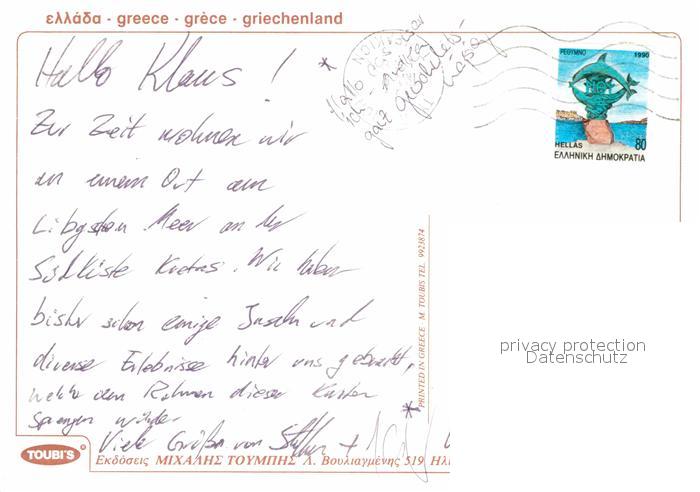 ελλάδα · greece · grèce · griechenland
Hallo Klaus! *
ΡΕΘΥΜΝΟ 1990
HELLAS 80
ΕΛΛΗΝΙΚΗ ΔΗΜΟΚΡΑΤΙΑ
Zur Zeit wohnen wir
an einem Ort am
Libyschen Meer an der
Südküste Kretas. Wir haben
bisher schon einige Inseln und
diverse Erlebnisse hinter uns gebracht,
welche den Rahmen dieser Karten
Sprengen würde.
Viele Grüße von +
*
PRINTED IN GREECE - M. TOUBIS TEL. 9923874
privacy protection
Datenschutz
TOUBI'S
Εκδόσεις ΜΙΧΑΛΗΣ ΤΟΥΜΠΗΣ Λ. Βουλιαγμένης 519